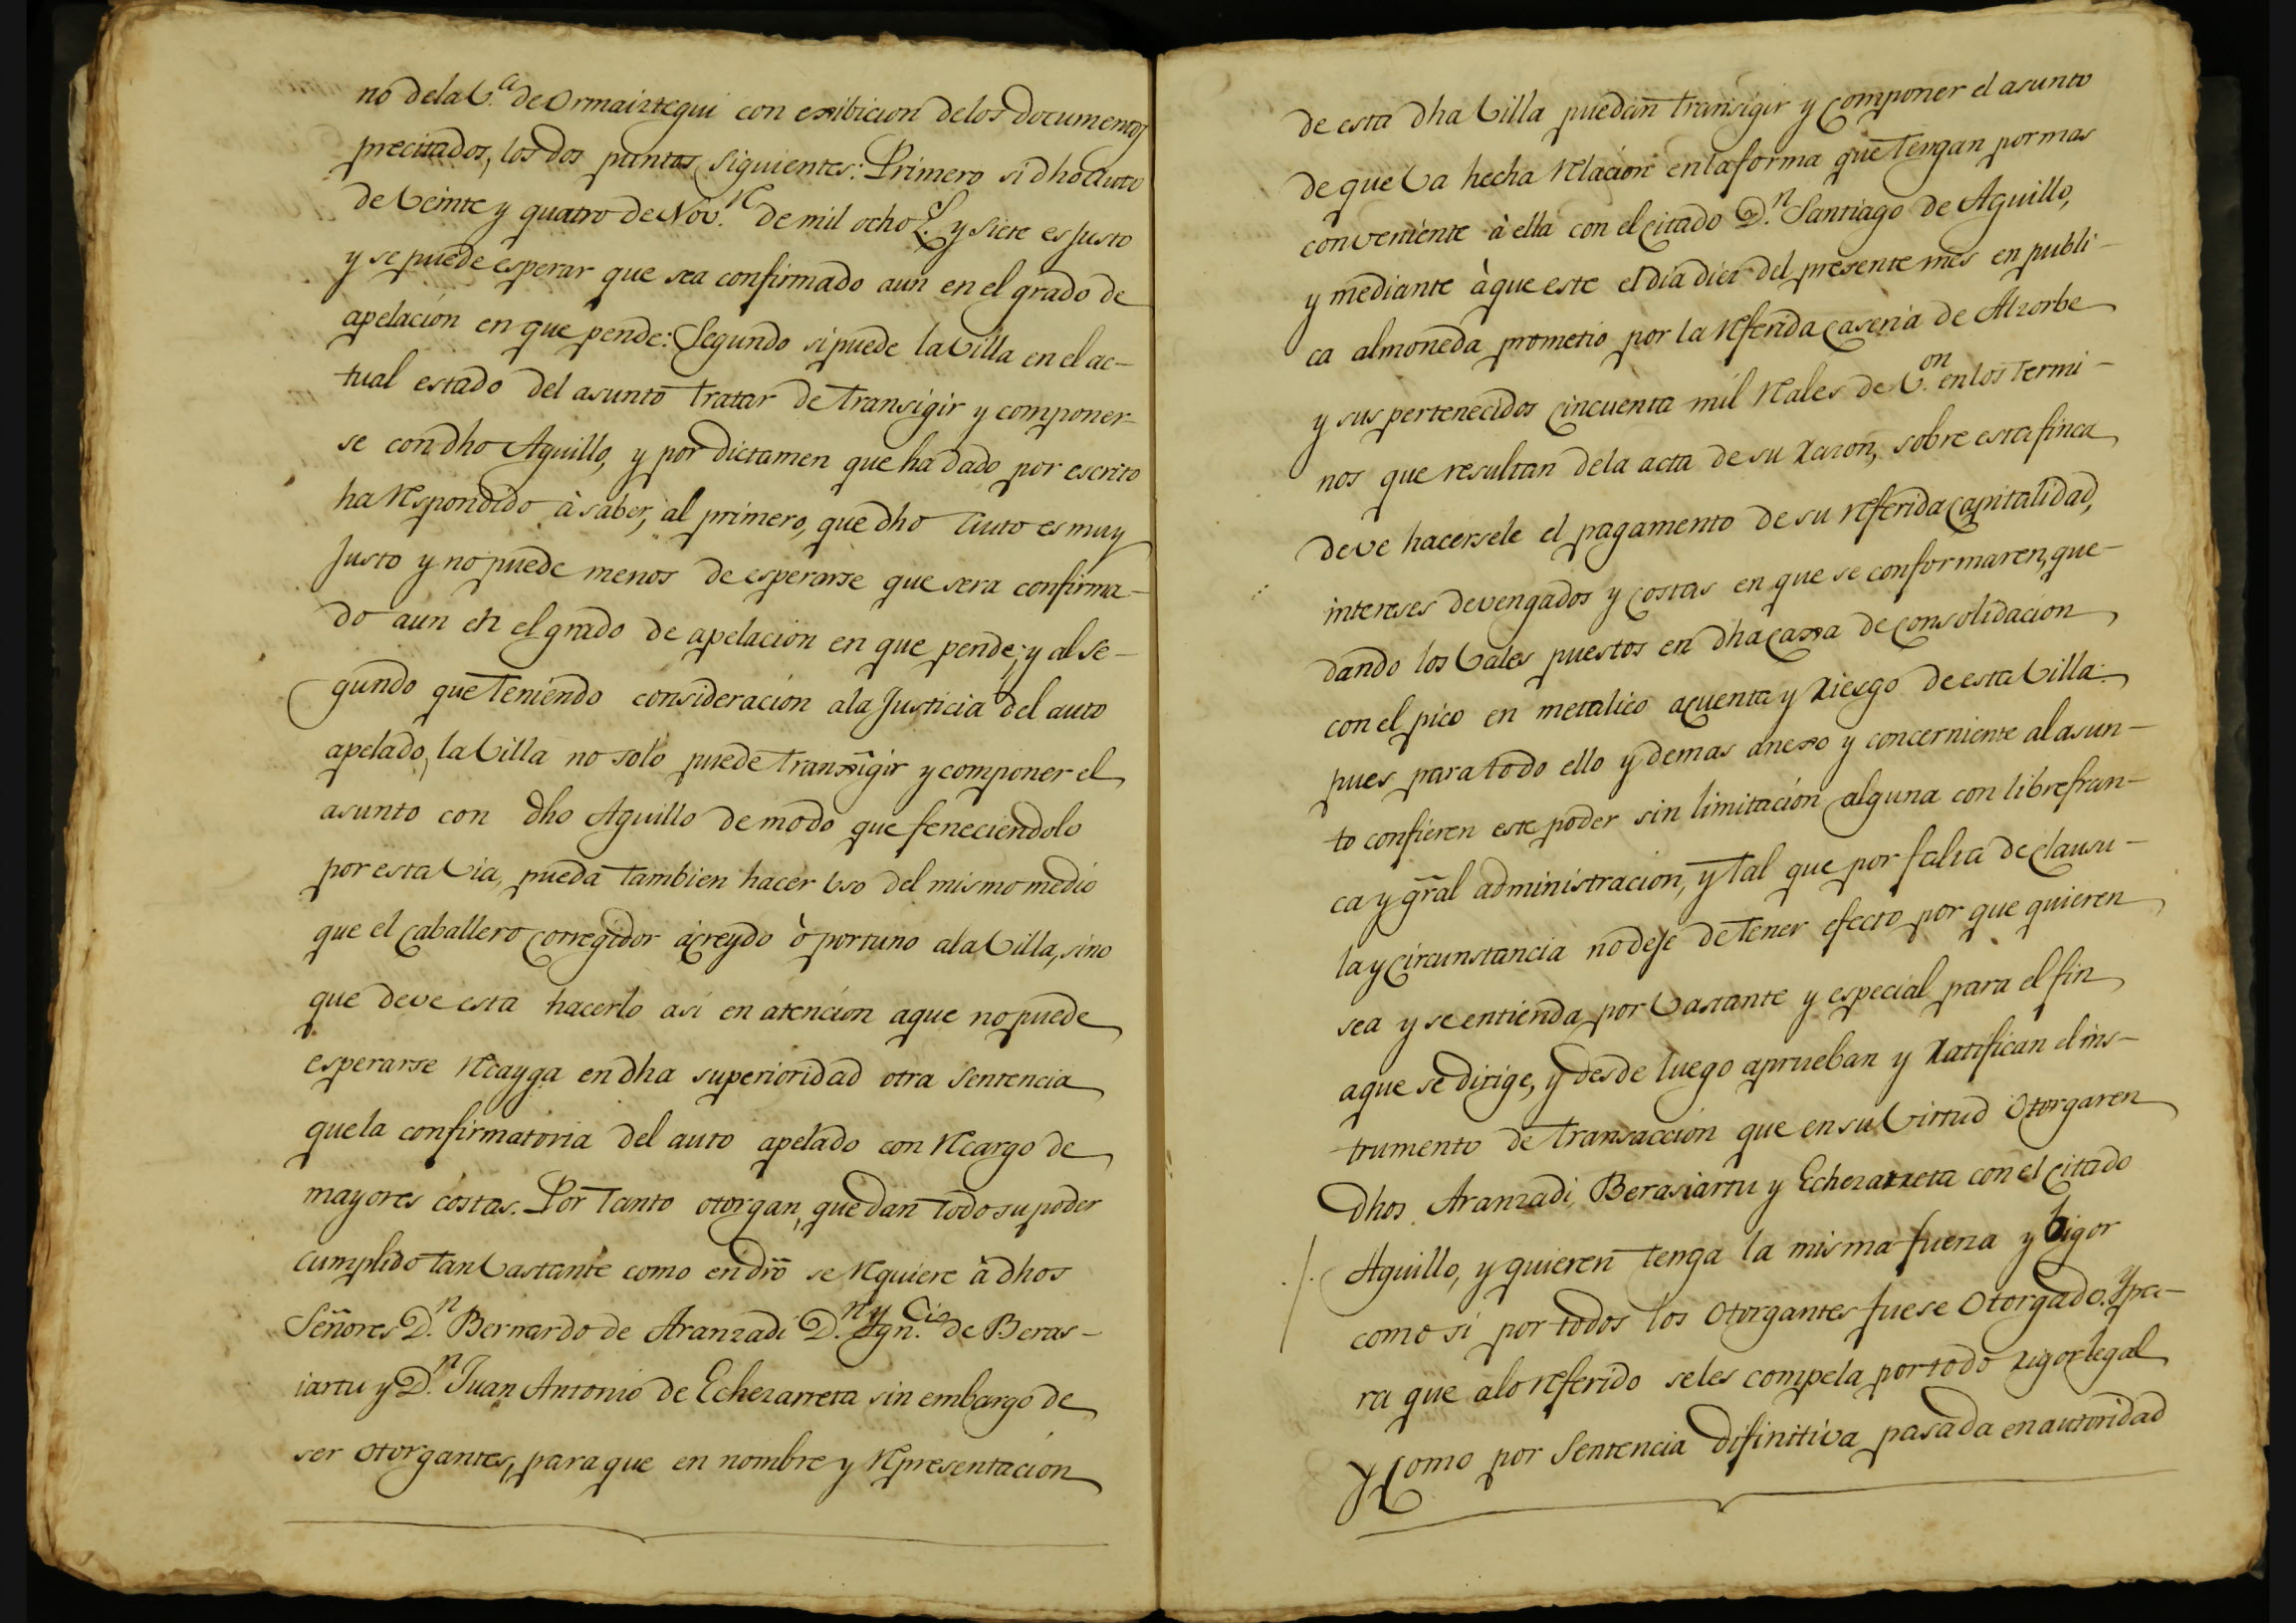 no dela V.ª de Ormaiztegui con exibicion delos documentos
precitados, los dos puntos siguientes: Primero si dho auto
de Veinte y quatro de Nov.re de mil ocho z.s y siete es Justo
y se puede esperar que sea confirmado aun en el grado de
apelacion en que pende: Segundo si puede la Villa en el ac-
tual estado del asunto tratar de transigir y componer-
se con dho Aguillo, y por dictamen que ha dado por escrito
ha respondido à saber, al primero, que dho auto es muy
Justo y no puede menos de esperarse que sera confirma-
do aun en el grado de apelacion en que pende; y al se-
gundo que teniendo consideracion ala Justicia del auto
apelado, la Villa no solo puede transigir y componer el
asunto con dho Aguillo de modo que feneciendolo
por esta Via, pueda tambien hacer Uso del mismo medio
que el Caballero Corregidor à creydo òportuno ala Villa, sino
que deve esta hacerlo asi en atencion aque no puede
esperarse recayga en dha superioridad otra sentencia
que la confirmatoria del auto apelado con recargo de
mayores costas. Por tanto otorgan, que dan todo su poder
cumplido tan Vastante como en dro se requiere à dhos
Señores D.n Bernardo de Aranzadi D.n Ygn.cio de Beras-
iartu y D.n Juan Antonio de Echezarreta sin embargo de
ser otorgantes, para que en nombre y representacion
de esta dha Villa puedan transigir y componer el asunto
de que Va hecha relacion en la forma que tengan por mas
conveniente à ella con el citado D.n Santiago de Aguillo,
y mediante àque este el dia diez del presente mes en publi-
ca almoneda prometio por la referida Caseria de Alzorbe
y sus pertenecidos cincuenta mil reales de V.on en los termi-
nos que resultan dela acta de su razon, sobre esta finca
deve hacersele el pagamento de su referida Capitalidad,
intereses devengados y costas en que se conformaren, que-
dando los Vales puestos en dha Caxa de Consolidacion
con el pico en metalico acuenta y riesgo de esta Villa:
pues para todo ello y demas anexo y concerniente al asun-
to confieren este poder sin limitacion alguna con libre fran-
ca y gral administracion, y tal que por falta de clausu-
la y circunstancia no deje de tener efecto por que quieren
sea y se entienda por Vastante y especial para el fin
aque se dirige, y desde luego aprueban y ratifican el ins-
trumento de transaccion que en su Virtud otorgaren
dhos Aranzadi, Berasiartu y Echezarreta con el citado
Aguillo, y quieren tenga la misma fuerza y Vigor
como si por todos los otorgantes fuese otorgado. Y pa-
ra que alo referido seles compela por todo rigor legal
y como por Sentencia difinitiva pasada en autoridad